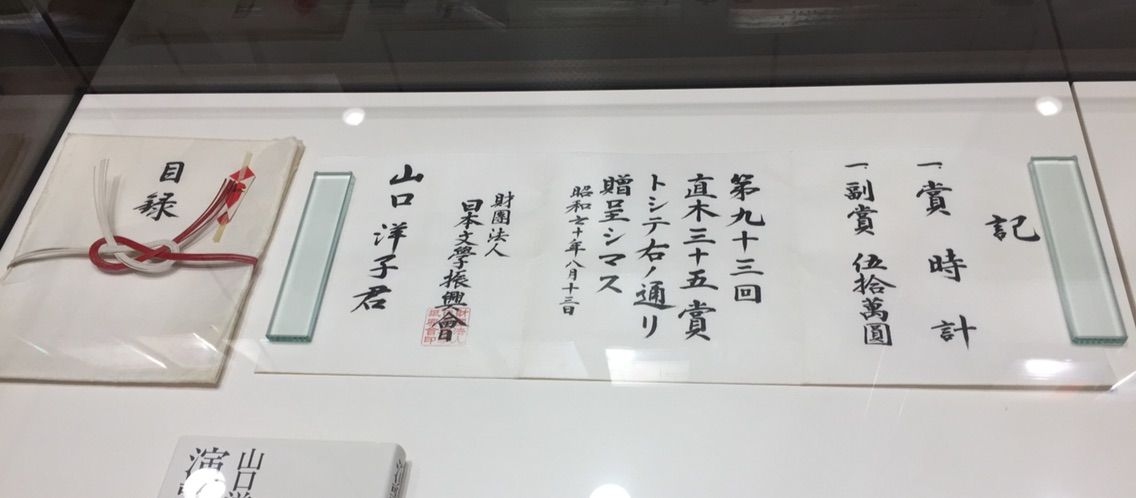 記
一、賞 時計
一、副賞 伍拾萬圓
第九十三回
直木三十五賞
トシテ右ノ通リ
贈呈シマス
昭和六十年八月十三日
財團法人
日本文學振興會
山口洋子君
目録
山口
演